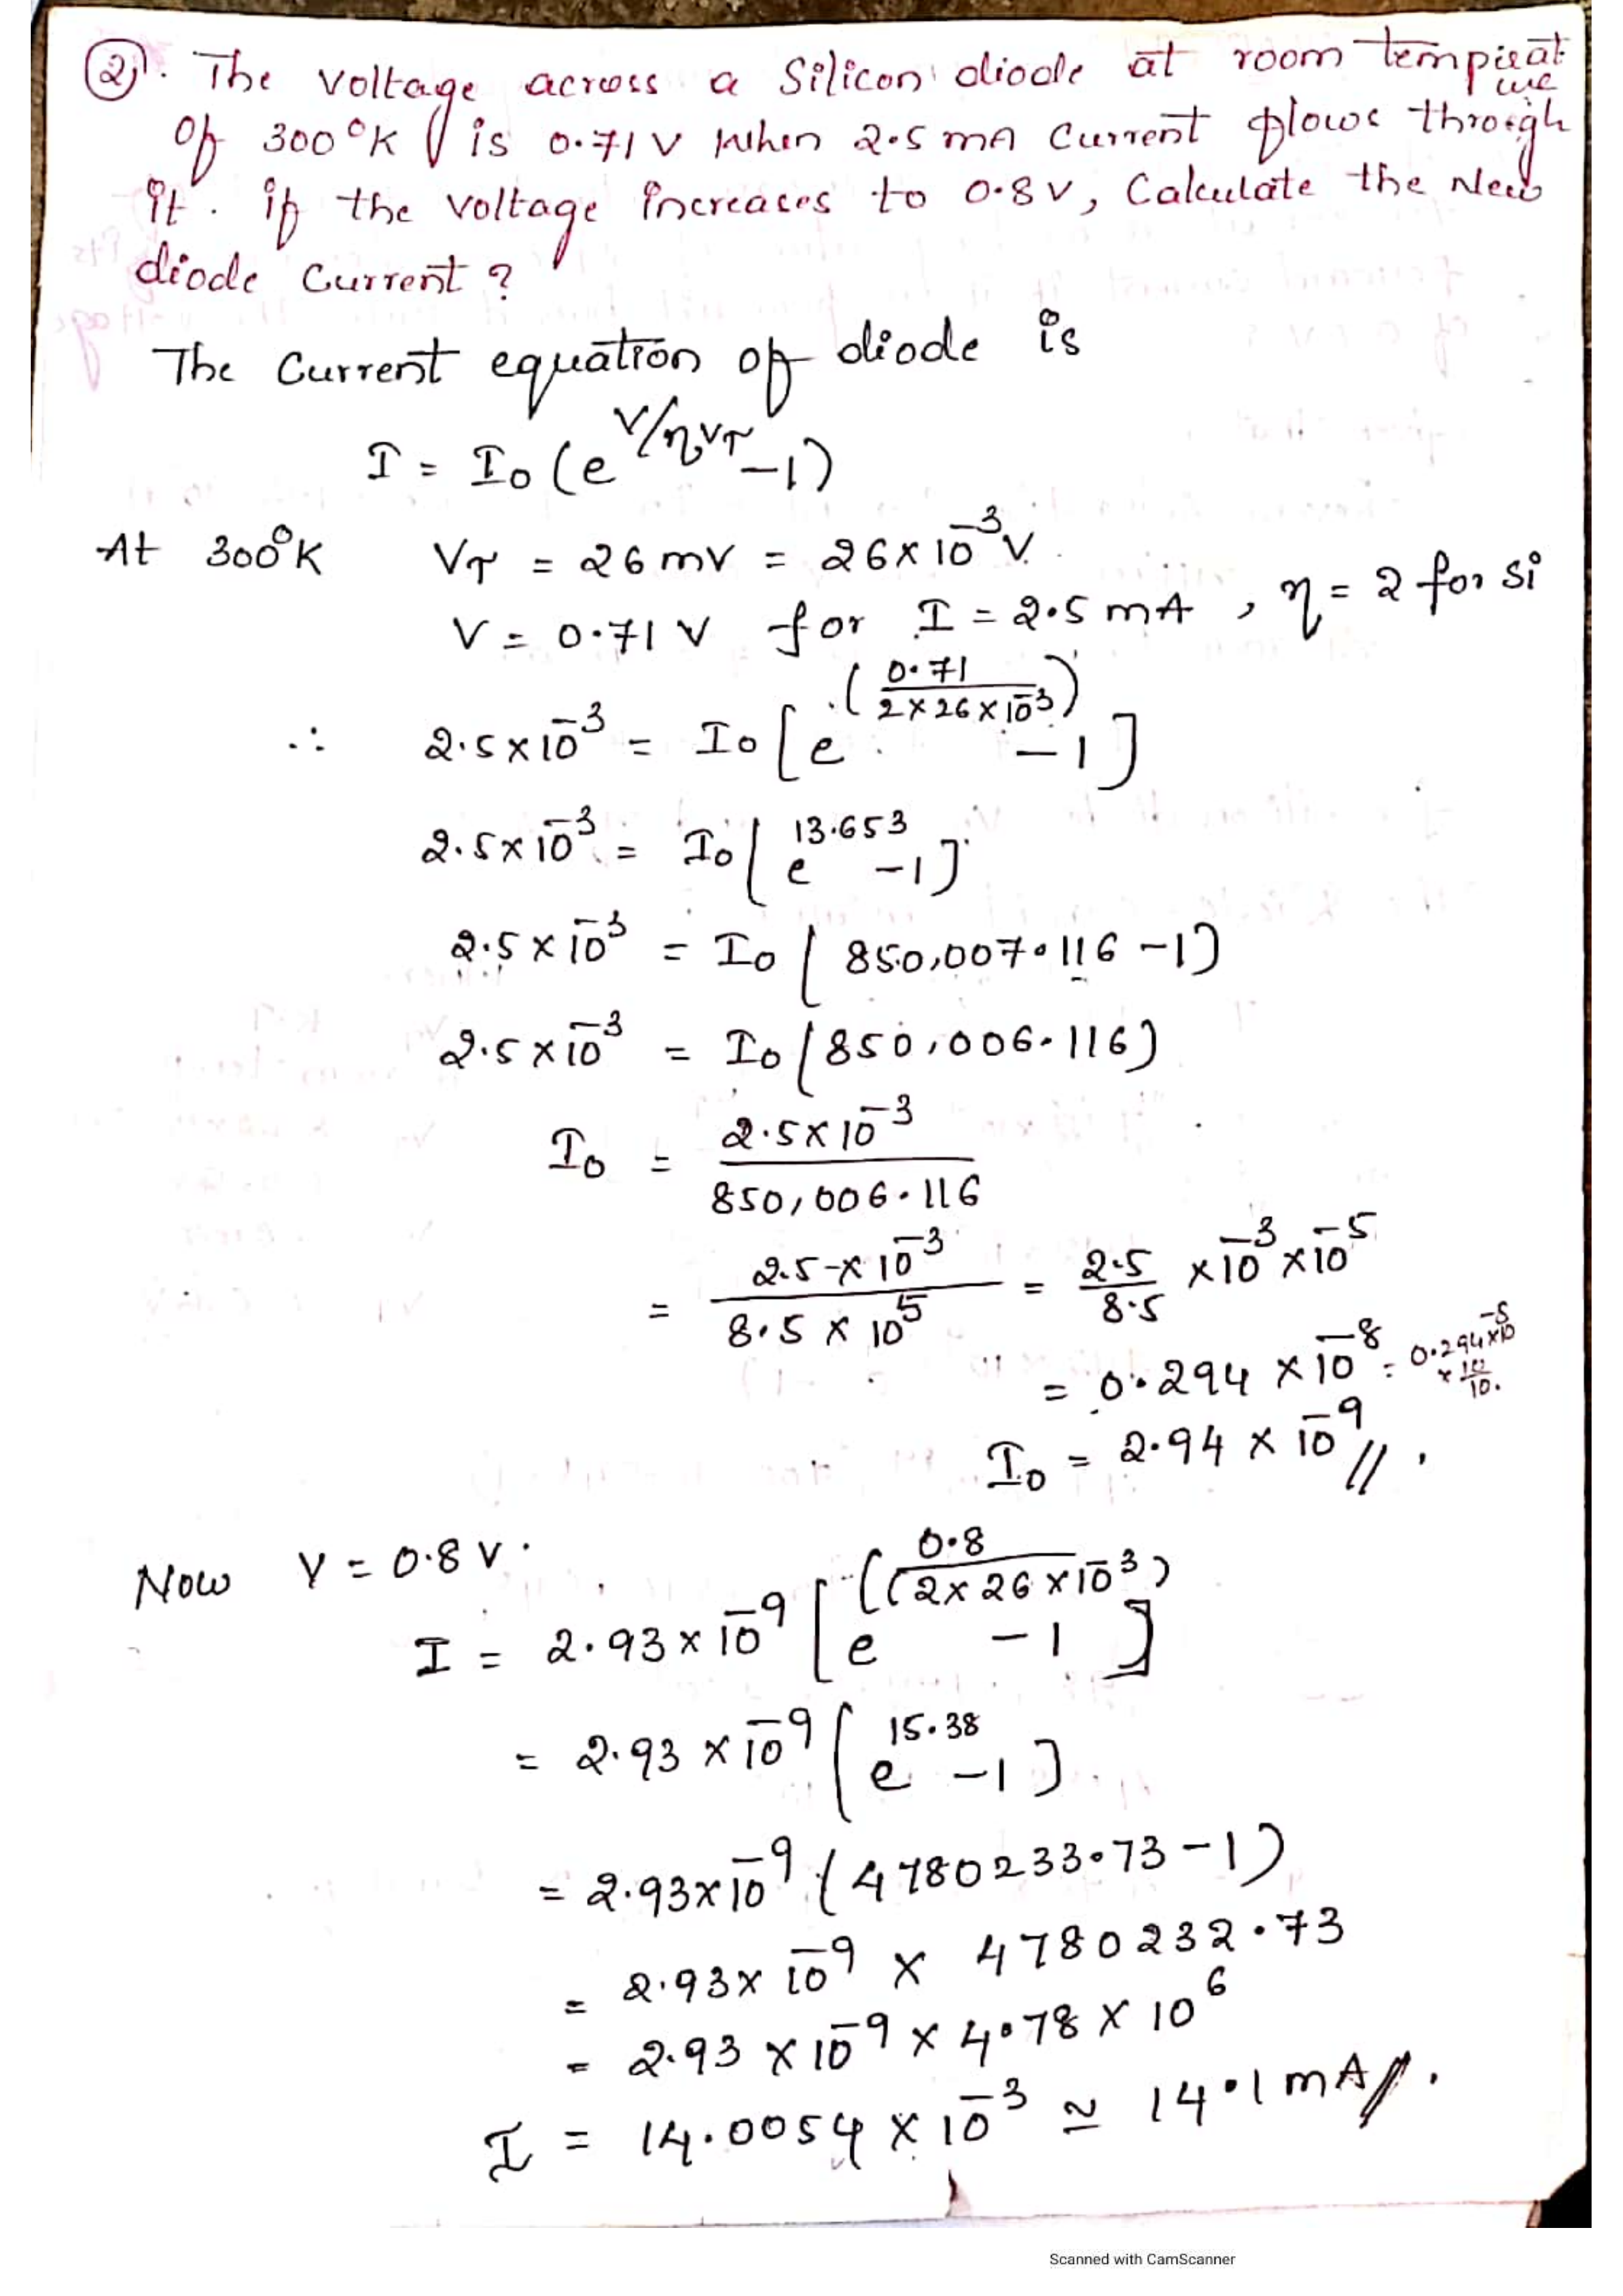 2). The voltage across a Silicon diode at room tempirature
of 300°K is 0.71 V when 2.5 mA Current flows through
it. if the voltage increases to 0.8 V, Calculate the New
diode Current?
The Current equation of diode is
I = I₀ (e^(V/ηV_T) -1)
At 300°K V_T = 26 mV = 26 × 10⁻³ V.
V = 0.71 V for I = 2.5 mA, η = 2 for Si
∴ 2.5 × 10⁻³ = I₀ [e^(0.71 / (2 × 26 × 10⁻³)) - 1]
2.5 × 10⁻³ = I₀ [e^13.653 - 1]
2.5 × 10⁻³ = I₀ [850,007.116 - 1)
2.5 × 10⁻³ = I₀ [850,006.116)
I₀ = 2.5 × 10⁻³ / 850,006.116
= 2.5 × 10⁻³ / 8.5 × 10⁵ = 2.5/8.5 × 10⁻³ × 10⁻⁵
= 0.294 × 10⁻⁸ = 0.294 × 10⁻⁸ × 10/10.
I₀ = 2.94 × 10⁻⁹ //.
Now V = 0.8 V.
I = 2.93 × 10⁻⁹ [e^((0.8 / (2 × 26 × 10⁻³)) - 1]
= 2.93 × 10⁻⁹ [e^15.38 - 1].
= 2.93 × 10⁻⁹ (4780233.73 - 1)
= 2.93 × 10⁻⁹ × 4780232.73
= 2.93 × 10⁻⁹ × 4.78 × 10⁶
I = 14.0054 × 10⁻³ ≃ 14.1 mA //.
Scanned with CamScanner